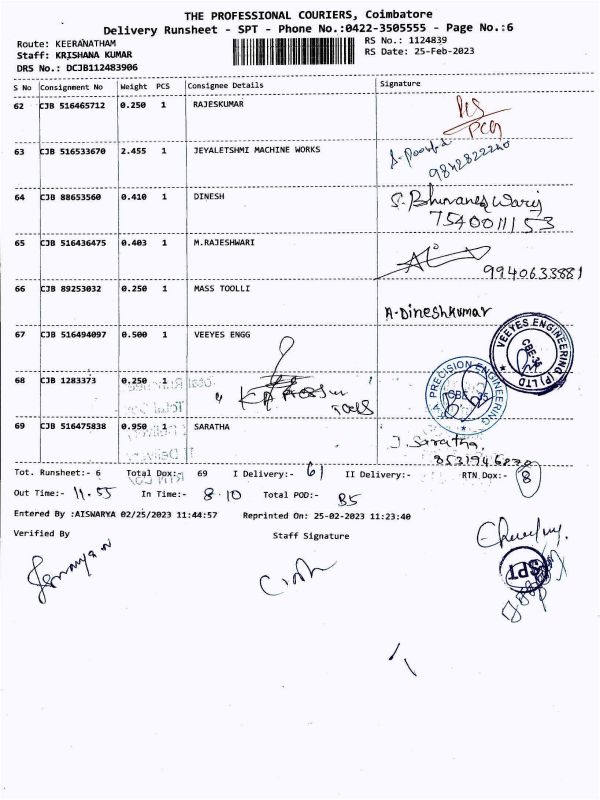 THE PROFESSIONAL COURIERS, Coimbatore
Delivery Runsheet - SPT - Phone No.:0422-3505555 - Page No.:6
Route: KEERANATHAM
RS No.: 1124839
Staff: KRISHANA KUMAR
RS Date: 25-Feb-2023
DRS No.: DCJB112483906
S No Consignment No Weight PCS Consignee Details Signature
62 CJB 516465712 0.250 1 RAJESKUMAR
63 CJB 516533670 2.455 1 JEYALETSHMI MACHINE WORKS
9842822240
64 CJB 88653560 0.410 1 DINESH S. Bhuvaneswari
7540011153
65 CJB 516436475 0.403 1 M.RAJESHWARI
9940633881
66 CJB 89253032 0.250 1 MASS TOOLLI A-Dineshkumar
67 CJB 516494097 0.500 1 VEEYES ENGG
VEEYES ENGINEERING (P) LTD
CBE-35
68 CJB 1283373 0.250 1
PRECISION ENGINEERING
CBE 35
69 CJB 516475838 0.950 1 SARATHA J. Saratha
Tot. Runsheet:- 6 Total Dox:- 69 I Delivery:- 61 II Delivery:- RTN Dox:- 8
Out Time:- 11.55 In Time:- 8.10 Total POD:- 85
Entered By :AISWARYA 02/25/2023 11:44:57 Reprinted On: 25-02-2023 11:23:40
Verified By Staff Signature
SPT